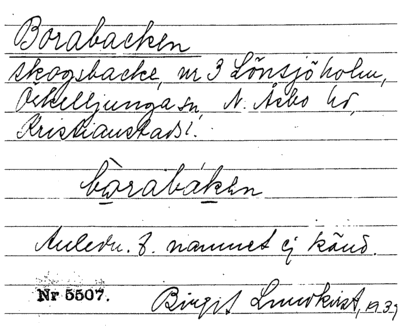 Borabacken
skogsbacke, nr 3 Lönsjöholm,
Örkelljunga sn, N. Åsbo hd,
Kristianstads l.
bòrabáken
Anledn. t. namnet ej känd.
Nr 5507. Birgit Lundkvist, 1939